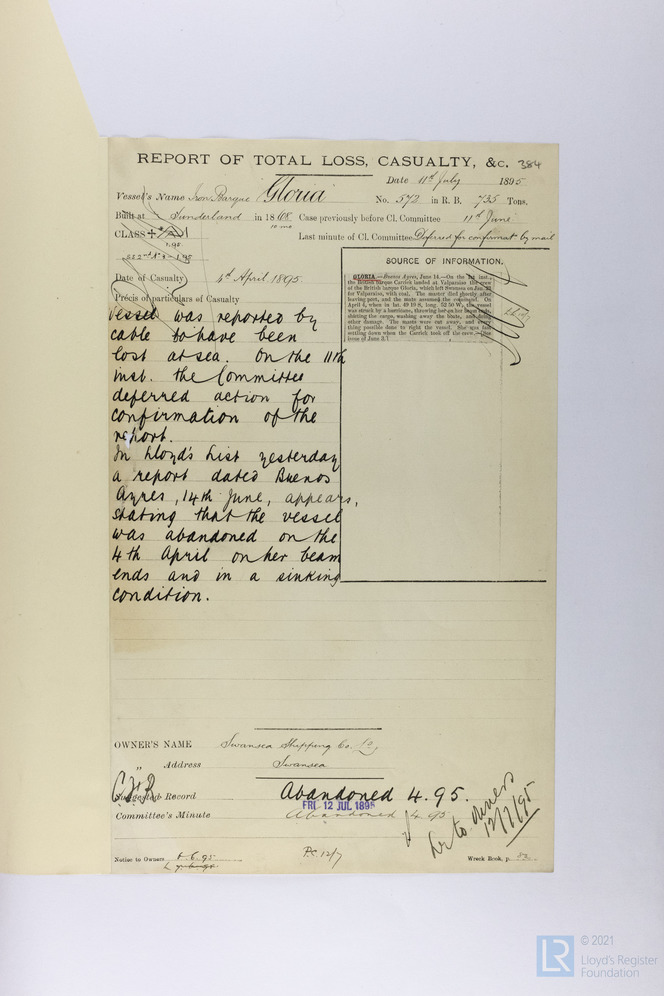 REPORT OF TOTAL LOSS, CASUALTY, &c. 384
Date 11th July 1895
Vessel's Name Iron Barque "Gloria" No. 572 in R. B. 735 Tons.
Built at Sunderland in 1868 Case previously before Cl. Committee 11th June
10 mo
CLASS Last minute of Cl. Committee Deferred for confirmat. by mail
1.95
Date of Casualty 4th April 1895
Précis of particulars of Casualty
Vessel was reported by
cable to have been
lost at sea. On the 11th
inst. the Committee
deferred action for
confirmation of the
report.
In Lloyd's List yesterday
a report dated Buenos
Ayres, 14th June, appears,
stating that the vessel
was abandoned on the
4th April on her beam
ends and in a sinking
condition.
SOURCE OF INFORMATION.
GLORIA.—Buenos Ayres, June 14.—On the 1st inst.,
the British barque Carrick landed at Valparaiso the crew
of the British barque Gloria, which left Swansea on
for Valparaiso, with coal. The master died shortly after
leaving port, and the mate assumed the command. On
April 4, when in lat. 49 19 S, long. 52 50 W, the vessel
was struck by a hurricane, throwing her on her beam ends,
shifting the cargo, washing away the boats, and doing
other damage. The masts were cut away, and every
thing possible done to right the vessel. She was fast
settling down when the Carrick took off the crew.—(See
issue of June 3.)
OWNER'S NAME Swansea Shipping Co. Ld,
" Address Swansea
Suggested Record Abandoned 4.95.
FRI 12 JUL 1895
Committee's Minute Abandoned 4.95
Lr to owners
12/7/95
Notice to Owners
P.C. 12/7
Wreck Book, p. 82
LR
© 2021
Lloyd's Register
Foundation